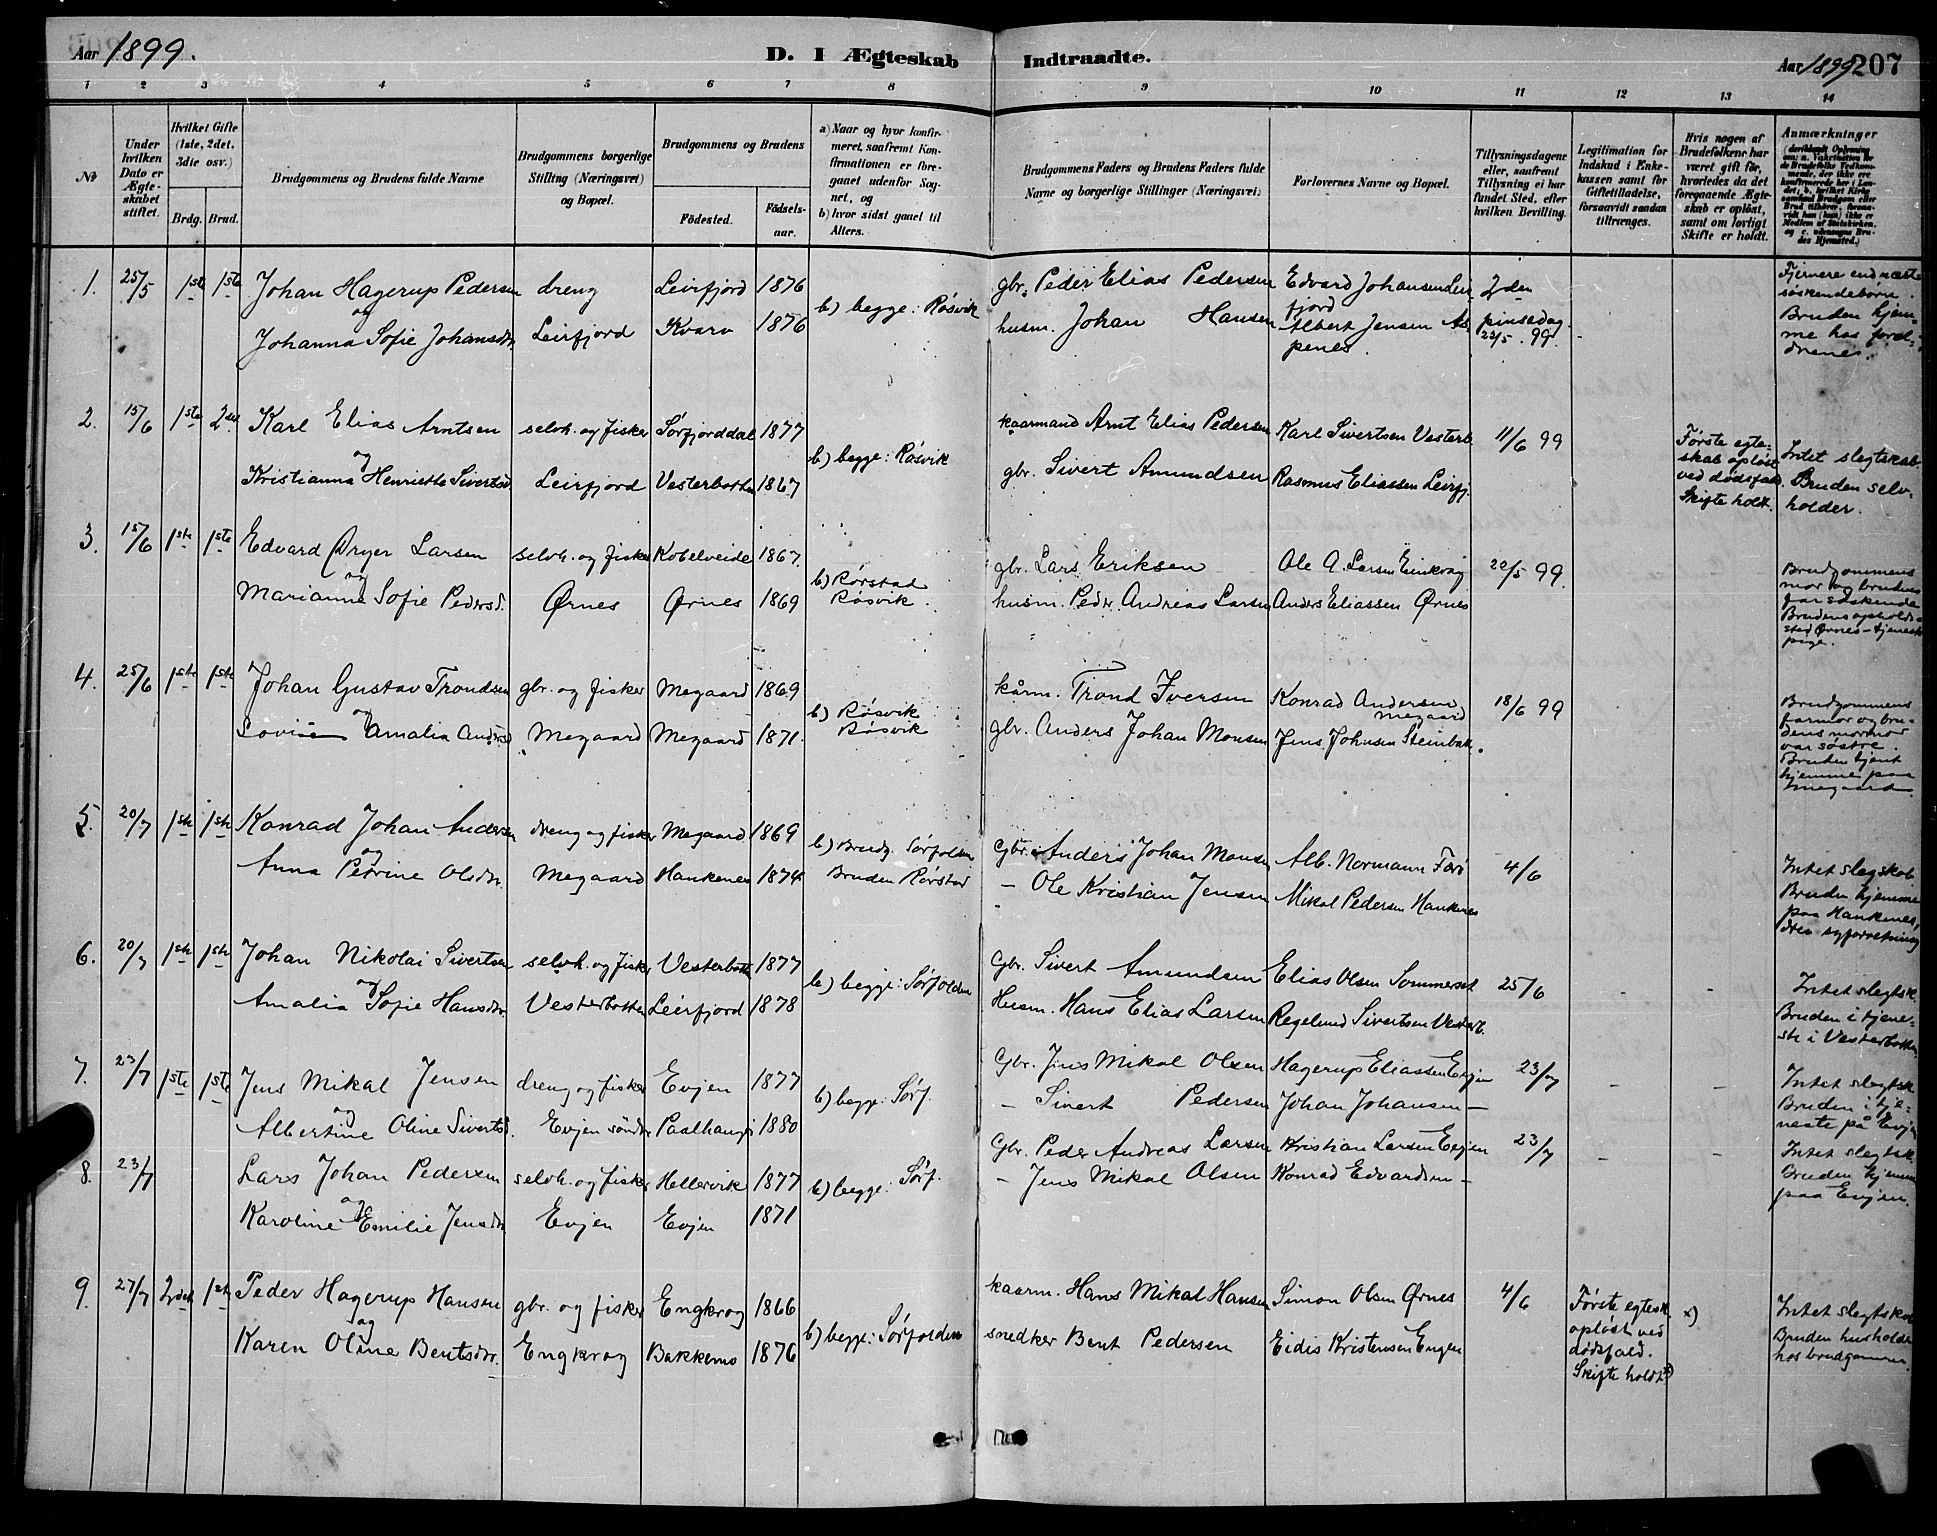 Aar 1899.
D. I Ægteskab Indtraadte.
Aar 1899 207
1 2 3 4 5 6 7 8 9 10 11 12 13 14
No
Under hvilken Dato er Ægteskabet stiftet.
Hvilket Gifte (1ste, 2det, 3die osv.)
Brdg. Brud.
Brudgommens og Brudens fulde Navne
Brudgommens borgerlige Stilling (Næringsvei) og Bopæl.
Brudgommens og Brudens
Fødested. Fødsels-aar.
a) Naar og hvor konfirmeret, saafremt Konfirmationen er foregaaet udenfor Sognet, og
b) hvor sidst gaaet til Alters.
Brudgommens Faders og Brudens Faders fulde Navne og borgerlige Stillinger (Næringsvei)
Forlovernes Navne og Bopæl.
Tillysningsdagene eller, saafremt Tillysning ei har fundet Sted, efter hvilken Bevilling.
Legitimation for Indskud i Enkekassen samt for Giftetilladelse, forsaavidt saadan tiltrænges.
Hvis nogen af Brudefolkene har været gift før, hvorledes da det foregaaende Ægteskab er opløst, samt om lovligt Skifte er holdt.
Anmærkninger
1. 25/5 1ste 1ste Johan Hagerup Pedersen dreng Leirfjord 1876 b) begge: Røsvik gbr. Peder Elias Pedersen Edvard Johansen Leirfjord 2den pinsedag 22/5 . 99. Fjernere end næstsöskendebørn.
og
Johanna Sofie Johansdr. Leirfjord Kvarv 1876 husm. Johan Hansen Albert Jensen Aspenes. Bruden hjemme hos forældrene.
2. 15/6 1ste 2det Karl Elias Arntsen selvh. og fisker Sørfjorddal 1877 b) begge: Røsvik kaarmand Arnt Elias Pedersen Karl Sivertsen Vesterb. 11/6 99 Første egteskab opløst ved dødsfald. Skifte holdt. Intet slegtskab
og
Kristianna Henriette Sivertsd. Leirfjord Vesterbotten 1867 gbr. Sivert Amundsen Rasmus Eliassen Leirfj. Bruden selvholder.
3. 15/6 1ste 1ste Edvard Dryer Larsen selvh. og fisker Kobelveide 1867. b) Rørstad gbr. Lars Eriksen Ole A. Larsen 22/5 99. Brudgommens mor og brudens far söskende
og
Marianne Sofie Pedersd. Ørnes Ørnes 1869 Røsvik. husm. Peder Andreas Larsen Anders Eliassen Ørnes Brudens opholdssted Ørnes - tjenestepige.
4. 25/6 1ste 1ste Johan Gustav Trondsen gbr. og fisker Megaard 1869 b) Røsvik kårm. Trond Iversen Konrad Andersen Megaard 18/6 99 Brudgommens farmor og brudens mormor var søstre.
og
Amalia Andersd. Megaard Megaard 1871. Røsvik gbr. Anders Johan Monsen Jens Johnsen Steinbak. Bruden tjent hjemme paa Megaard.
5. 20/7 1ste 1ste Konrad Johan Andersen dreng og fisker Megaard 1869 b) Brudg. Sørfolden Gbr. Anders Johan Monsen Alb. Normann Farö 4/6 Intet slegskab
og
Anna Petrine Olsdr. Megaard Hankenes 1874 Bruden Rørstad - Ole Kristian Jensen Mikal Pedersen Hankenes Bruden hjemme paa Hankenes, drev syforretning
6. 20/7 1ste 1ste Johan Nikolai Sivertsen selvh. og fisker Vesterbott. 1877 b) begge: Sørfolden Gbr. Sivert Amundsen Elias Olsen Sommerset 25/6 - - Intet slegtsk.
og
Amalia Sofie Hansdr. Vesterbotten Leirfjord 1878 Husm. Hans Elias Larsen Regelund Sivertsen Vesterb. Bruden i tjeneste i Vesterbotten
7. 23/7 1ste 1ste Jens Mikal Jensen dreng og fisker Evjen 1877 b) begge: Sørf. Gbr. Jens Mikal Olsen Hagerup Eliassen Evjen 23/7 - - Intet slegtsk.
og
Albertine Oline Sivertsd. Evjen søndre Paalhaug 1880 - Sivert Pedersen Johan Johansen - Bruden i tjeneste på Evjen
8. 23/7 Lars Johan Pedersen selvh. og fisker Hellervik 1877 b) begge: Sørf. Gbr. Peder Andreas Larsen Kristian Larsen Evjen 23/7 - - Intet slegtsk.
og
Karoline Emilie Jensdr. Evjen Evjen 1871 - Jens Mikal Olsen Konrad Edvardsen - Bruden hjemme paa Evjen.
9. 27/7 2det 1ste Peder Hagerup Hansen gbr. og fisker Engkrog 1866 b) begge: Sørfolden kaarm. Hans Mikal Hansen Simon Olsen Ørnes 4/6 Første egtesk. opløst ved dødsfald. Skifte holdt x) x) Intet slegtskab
og
Karen Oline Bentsdr. Engkrog Bakkemo 1876 snedker Bent Pedersen Eidis Kristensen Engen Bruden husholder hos brudgommen